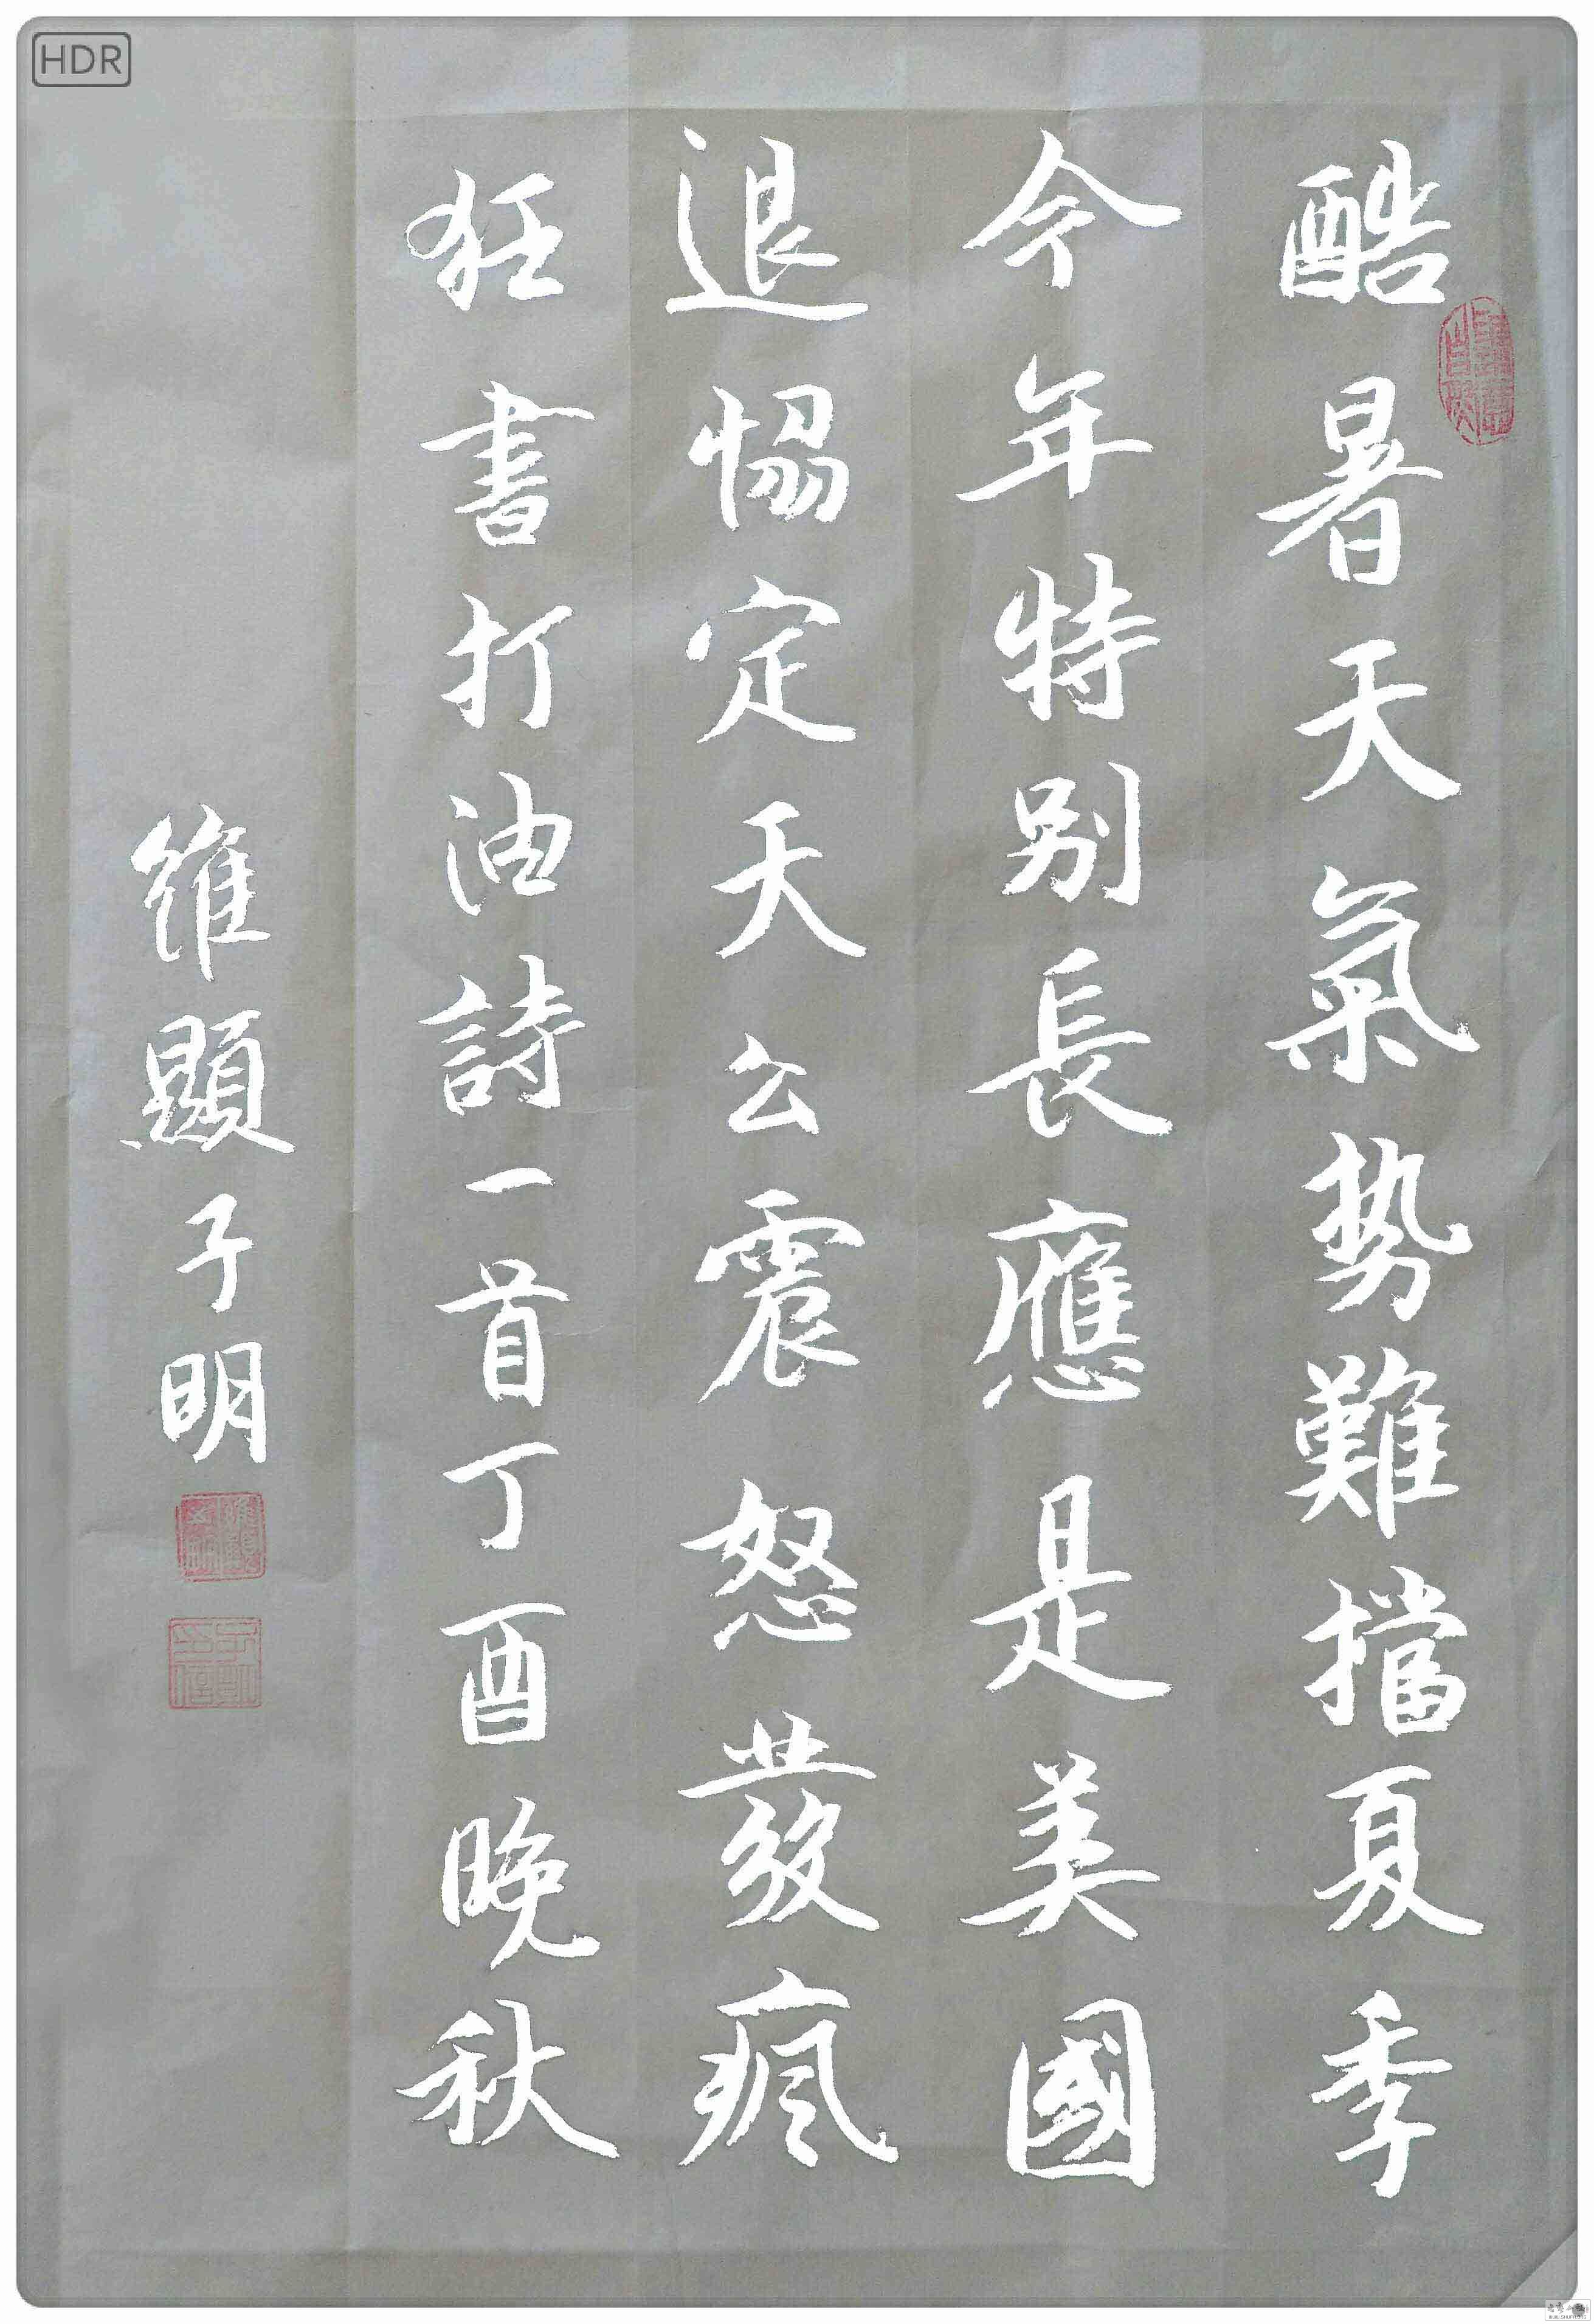 酷暑天氣势難擋夏季
今年特别長應是美國
退恊定天公震怒發瘋
狂書打油詩一首丁酉晚秋
維顯子明
HDR